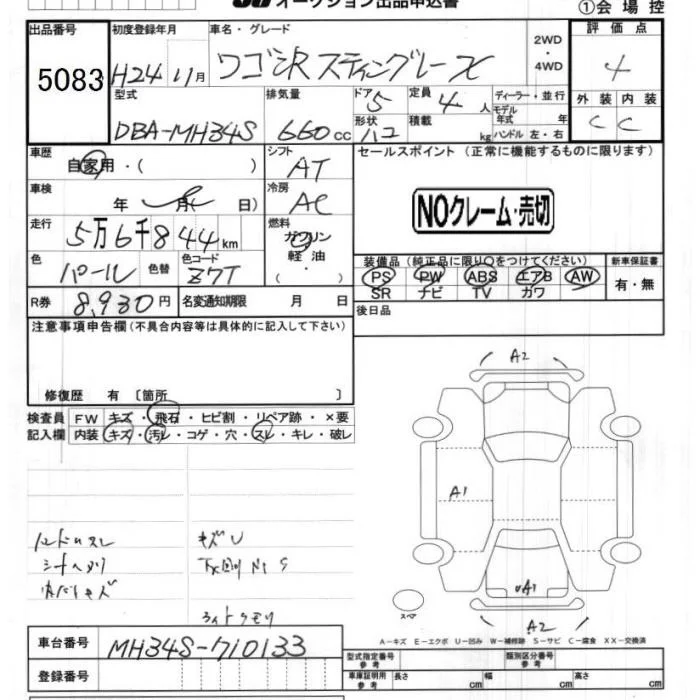 オークション出品申込書 ①会場控
出品番号 初度登録年月 車名・グレード 2WD・4WD 評価点
5083 H24 11月 ワゴンR スティングレー X 4
型式 排気量 ドア 5 定員 4人 ディーラー・並行 外装 内装
DBA-MH34S 660cc 形状 ハコ 積載 kg モデル年式 年 ハンドル 左・右 C C
車歴 シフト セールスポイント (正常に機能するものに限ります)
自家用・( ) AT
車検 冷房
年 月( 日) AC NOクレーム・売切
走行 燃料
5万6千844km ガソリン 軽油・( )
色 色替 色コード 装備品 (純正品に限り○をつけてください) 新車保証書
パール Z7T PS PW ABS エアB AW 有・無
SR ナビ TV カワ
R券 8,930円 名変通知期限 月 日 後日品
注意事項申告欄(不具合内容等は具体的に記入して下さい)
修復歴 有 〔箇所 〕
検査員 FW キズ・飛石・ヒビ割・リペア跡・×要
記入欄 内装 キズ・汚レ・コゲ・穴・スレ・キレ・破レ
A2
A1
ハンドルスレ キズU
シートヘタリ 下廻りサビ
内バリキズ
ライトクモリ
UA1
スペア
A2
A-キズ E-エクボ U-凹み W-補修跡 S-サビ C-腐食 XX-交換済
車台番号 MH34S-710133
型式指定番号 参考 類別区分番号 参考
登録番号 車庫証明用 参考 長さ cm 幅 cm 高さ cm